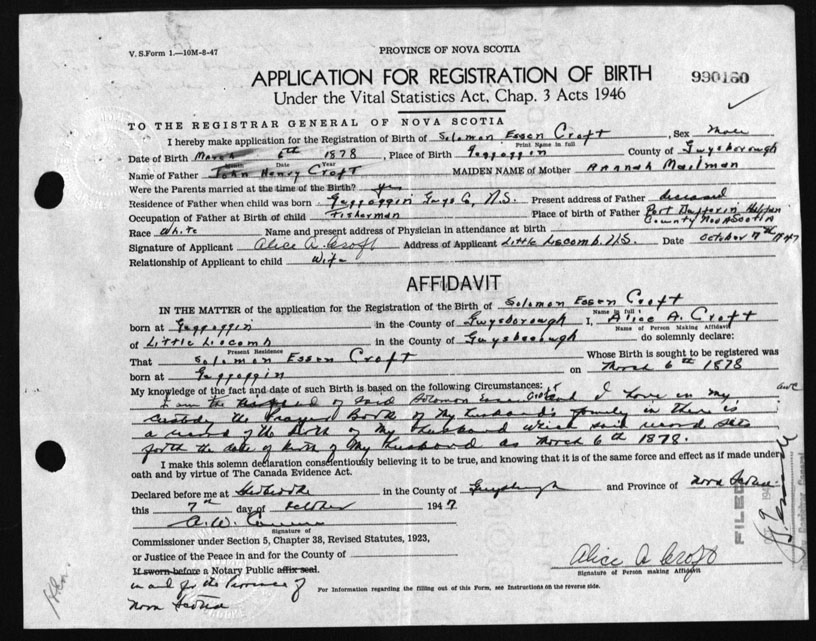 V. S. Form 1.—10M-8-47
PROVINCE OF NOVA SCOTIA
APPLICATION FOR REGISTRATION OF BIRTH
990160
Under the Vital Statistics Act, Chap. 3 Acts 1946
TO THE REGISTRAR GENERAL OF NOVA SCOTIA
I hereby make application for the Registration of Birth of Solomon Essen Croft, Sex Male
Print Name in full
Date of Birth March 6th 1878, Place of Birth Gegoggin County of Guysborough
Month Date Year
Name of Father John Henry Croft MAIDEN NAME of Mother Annah Mailman
Were the Parents married at the time of the Birth? yes
Residence of Father when child was born Gegoggin Guys Co, N.S. Present address of Father deceased
Occupation of Father at Birth of child Fisherman Place of Birth of Father Port Halifax
County Nova Scotia
Race White Name and present address of Physician in attendance at birth
Signature of Applicant Alice A. Croft Address of Applicant Little Liscomb. N.S. Date October 7th 1947
Relationship of Applicant to child Wife
AFFIDAVIT
IN THE MATTER of the application for the Registration of the Birth of Solomon Essen Croft
Name in full
born at Gegoggin in the County of Guysborough I, Alice A. Croft
Name of Person Making Affidavit
of Little Liscomb in the County of Guysborough do solemnly declare:
Present Residence
That Solomon Essen Croft Whose Birth is sought to be registered was
born at Gegoggin on March 6th 1878
My knowledge of the fact and date of such Birth is based on the following Circumstances:
I am the of said Solomon Essen Croft and I have in my
custody the Prayer Book of my husband's family in there is
a record of the birth of my husband which said record sets
forth the date of birth of my husband as March 6th 1878.
I make this solemn declaration conscientiously believing it to be true, and knowing that it is of the same force and effect as if made under
oath and by virtue of The Canada Evidence Act.
Declared before me at Sherbrooke in the County of Guysborough and Province of Nova Scotia
this 7th day of October 1947
A. W.
Signature of
Commissioner under Section 5, Chapter 38, Revised Statutes, 1923,
or Justice of the Peace in and for the County of
If sworn before a Notary Public affix seal.
in and for the Province of
Nova Scotia
Alice A Croft
Signature of Person making Affidavit
For Information regarding the filling out of this Form, see Instructions on the reverse side.
FILED